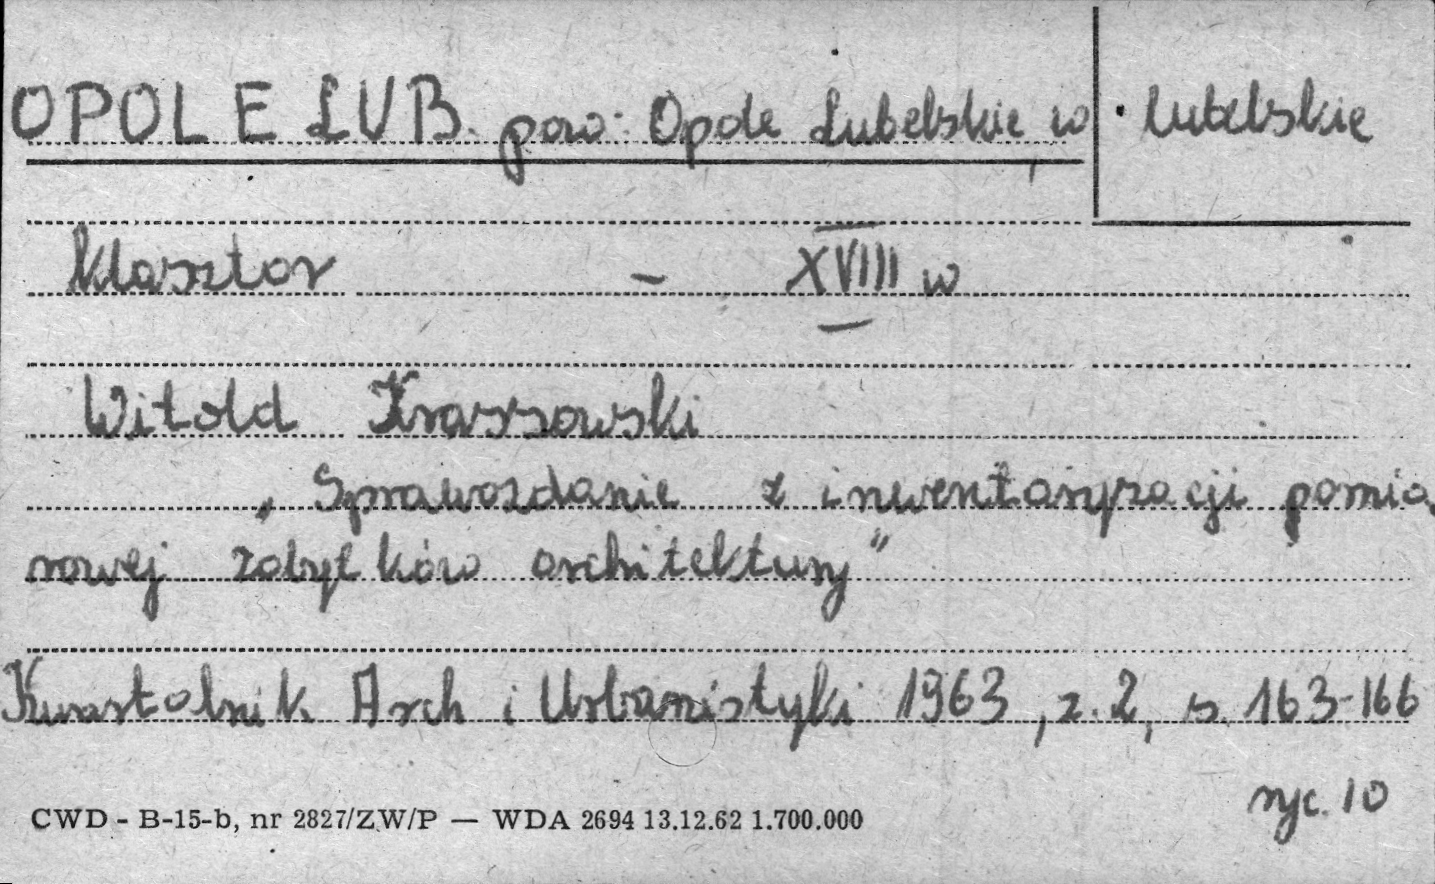 OPOLE LUB. pow: Opole Lubelskie, w. lubelskie
Klasztor - XVIII w
Witold Kraszowski
„Sprawozdanie z inwentaryzacji pomia
rowej zabytków architektury"
Kwartalnik Arch i Urbanistyki 1963, z. 2, s. 163-166
ryc. 10
CWD - B-15-b, nr 2827/ZW/P — WDA 2694 13.12.62 1.700.000